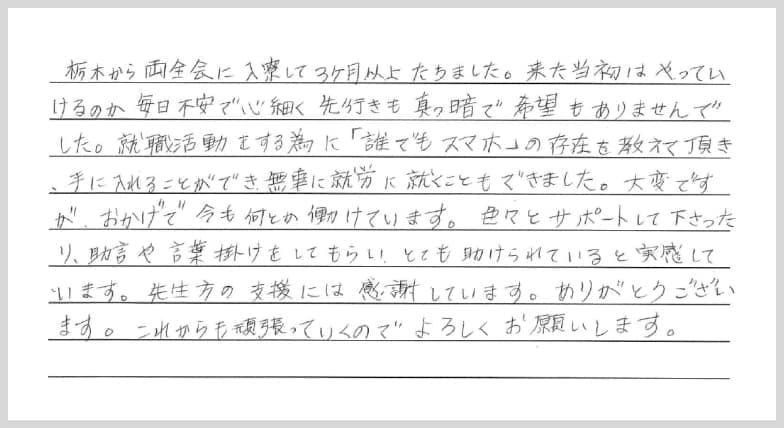 栃木から両全会に入寮して3ケ月以上たちました。来た当初はやってい
けるのか毎日不安で心細く先行きも真っ暗で希望もありませんで
した。就職活動をする為に「誰でもスマホ」の存在を教えて頂き
、手に入れることができ、無事に就労に就くこともできました。大変です
が、おかげで今も何とか働けています。色々とサポートして下さった
り、助言や言葉掛けをしてもらい、とても助けられていると実感して
います。先生方の支援には感謝しています。ありがとうござい
ます。これからも頑張っていくのでよろしくお願いします。